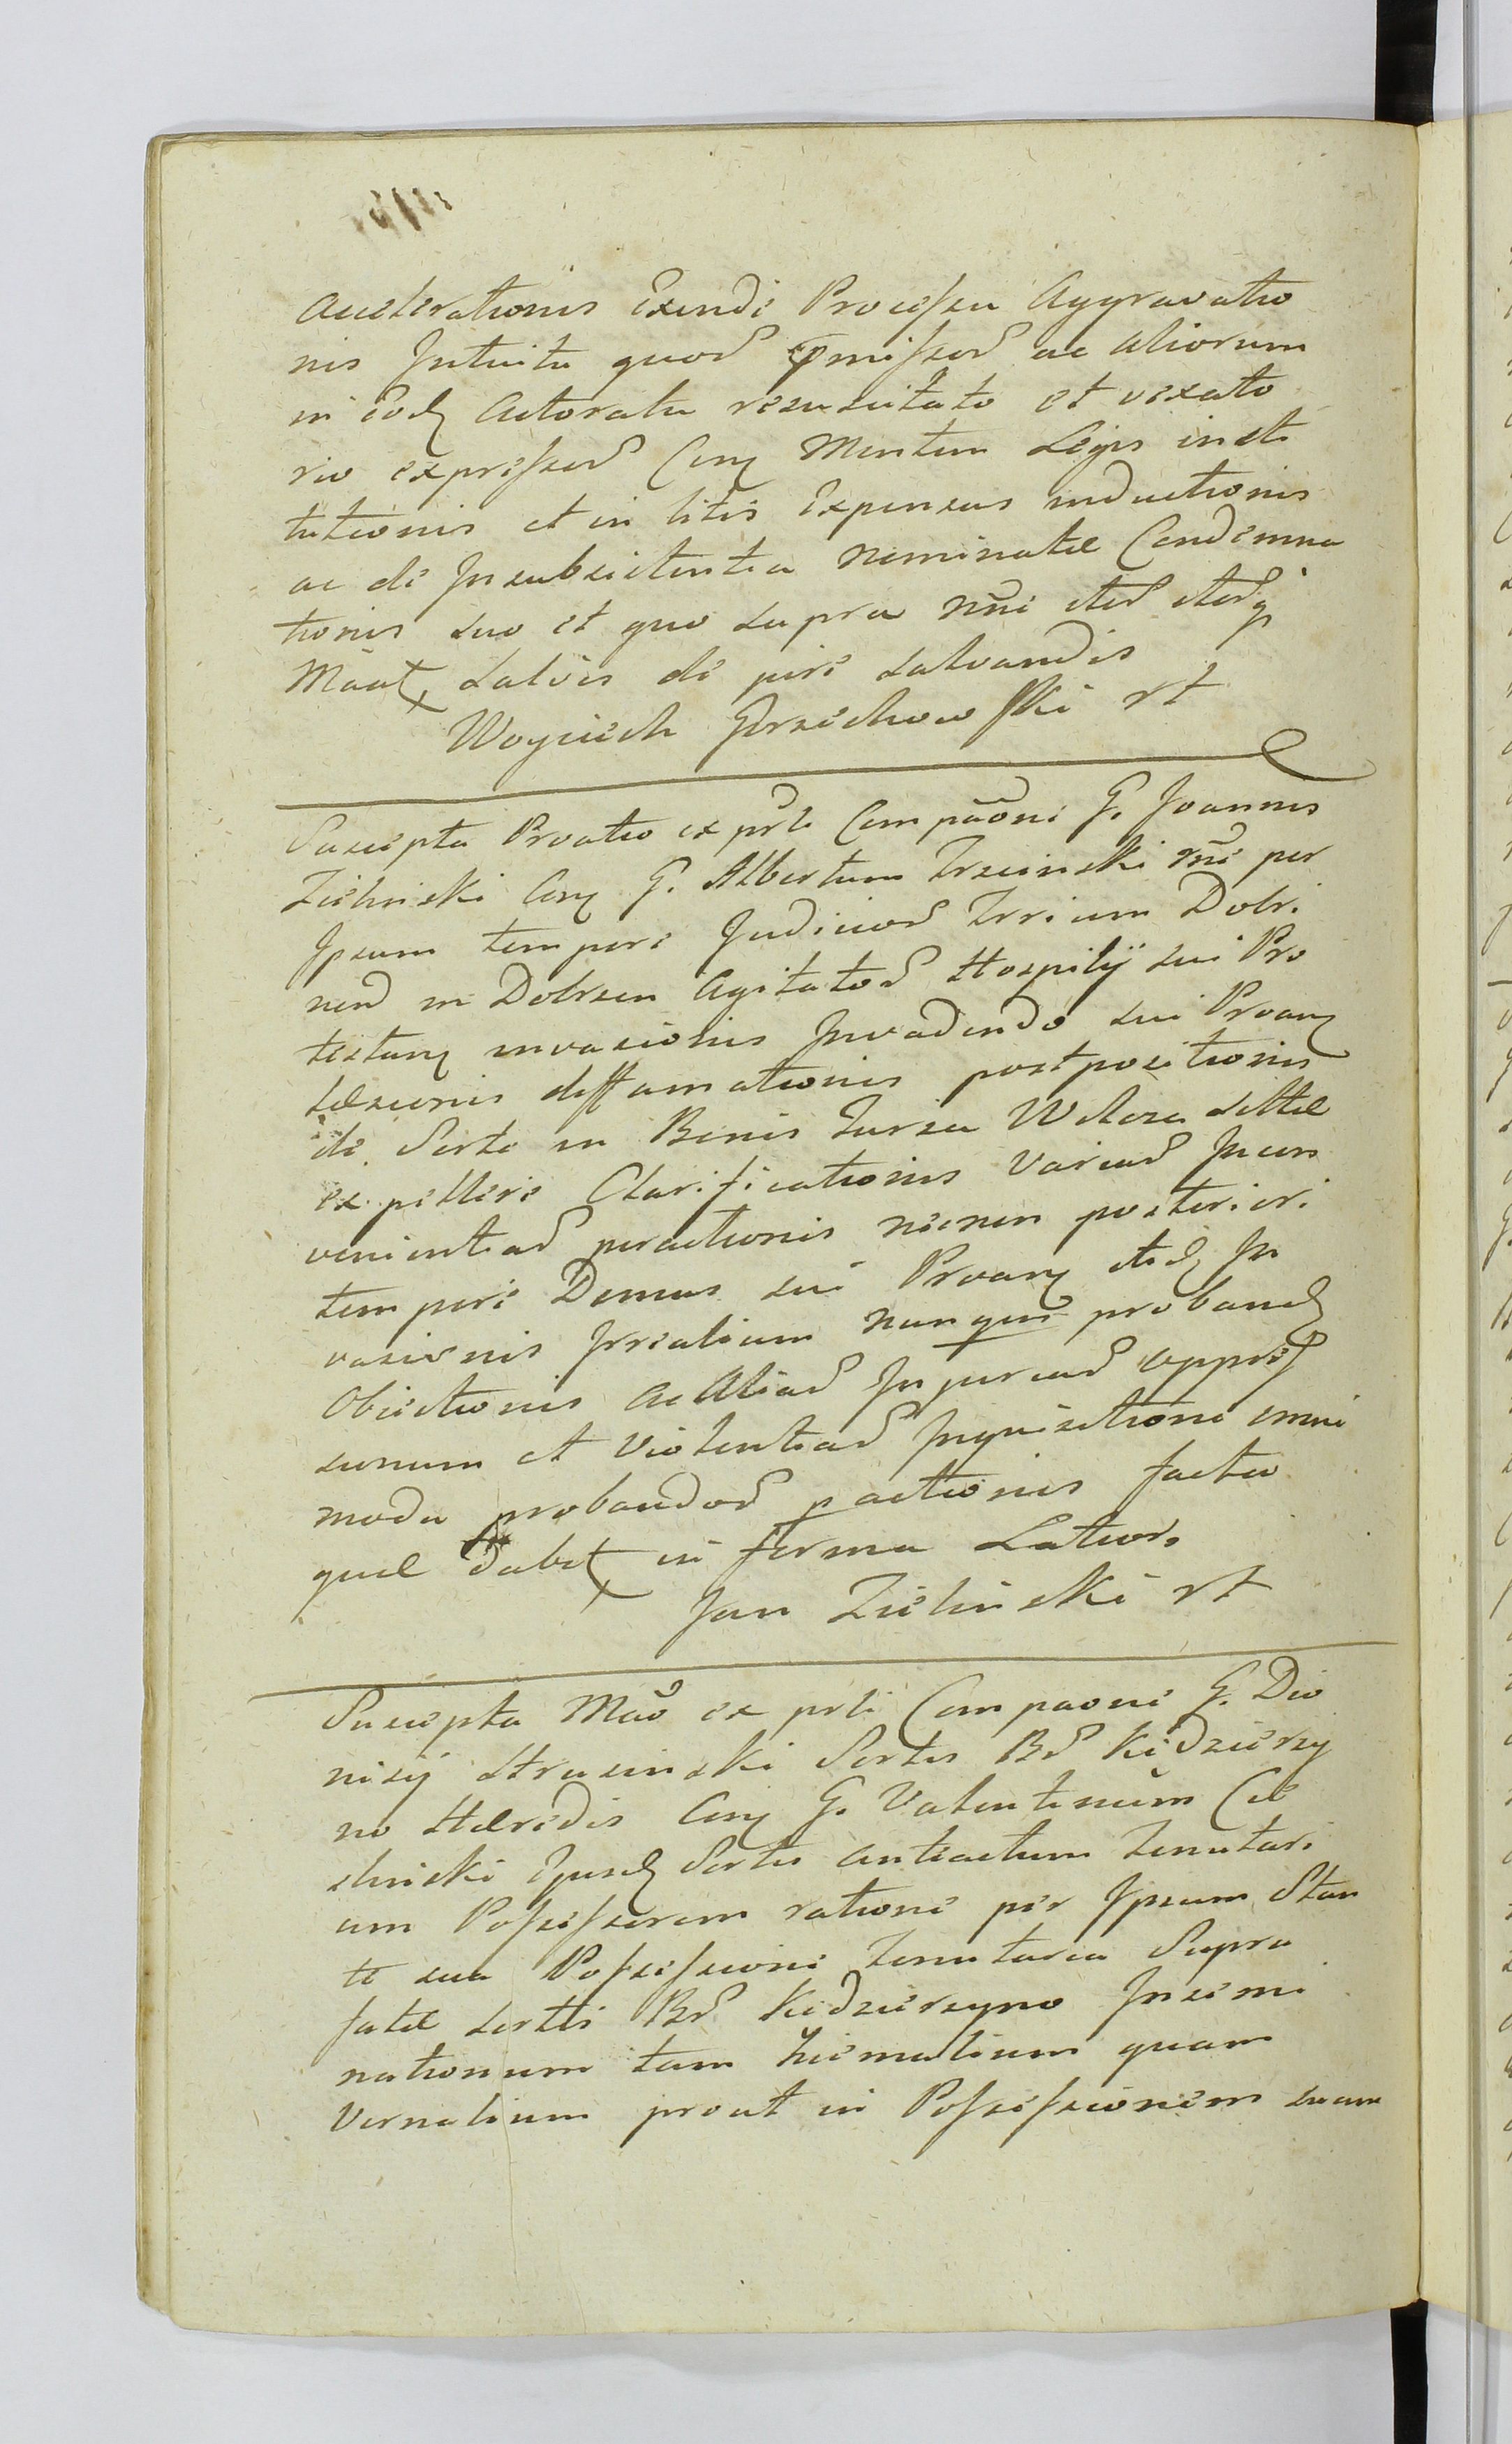 accelerationis Exinde Processu Aggravatio
nis Intuitu quorũ p̃missorũ ac aliorum
in Eodẽ Actoratu resuscitato et vexato
rio expressorũ Con̨ Mentem Legis insti
tutionis et in litis Expensas inductionis
ac de Insubsistentia nominatæ Condemna
tionis suo et quo supra nñi
Mãat, salvis de jure salvandis
Woyciech Grzechowski rt
Suscepta Prõatio ex prte Compãoni G. Joannis
Zielinski Con̨ G. Albertum Trzcinski rñe per
Ipsum tempore Judiciorũ Trrium Dobri
nen̄ in Dobrzen Agitatorũ Hospitÿ sui Pro
testan̨ invasionis Invadendo sui Proan̨
Læsionis diffamationis postpositionis
de Sorte in Bonis Turza Wilcza dictæ
expellere Clarificationis Variarũ Incon
venientiarũ peractionis necnon posteriori
tempore Domus sui Proan̨ In
vasionis Irrealium nunquã proband̨
Obiectionis ac Aliarũ Injuriarũ oppres
sionum et Violentiarũ Inquisitione omni
moda probandorũ pactionis facta
quæ dabit, in forma Latiors
Jan Zielinski rt
Suscepta Mãõ ex prte Compaone G. Dio
nisÿ Strusinski Sortis Brũ Kiedzierzy
no Hæredis Con̨ G. Valentinum Cie
chinski Ejusd̨ Sortis anteactum Tenutari
um Possessorem ratione per Ipsum Stan
te sua Possessione Tenutaria Supra
fatæ sortis Brũ Kiedzierzyno Insemi
nationum tam hiemalium quam
Vernalium prout in Possessionem suam